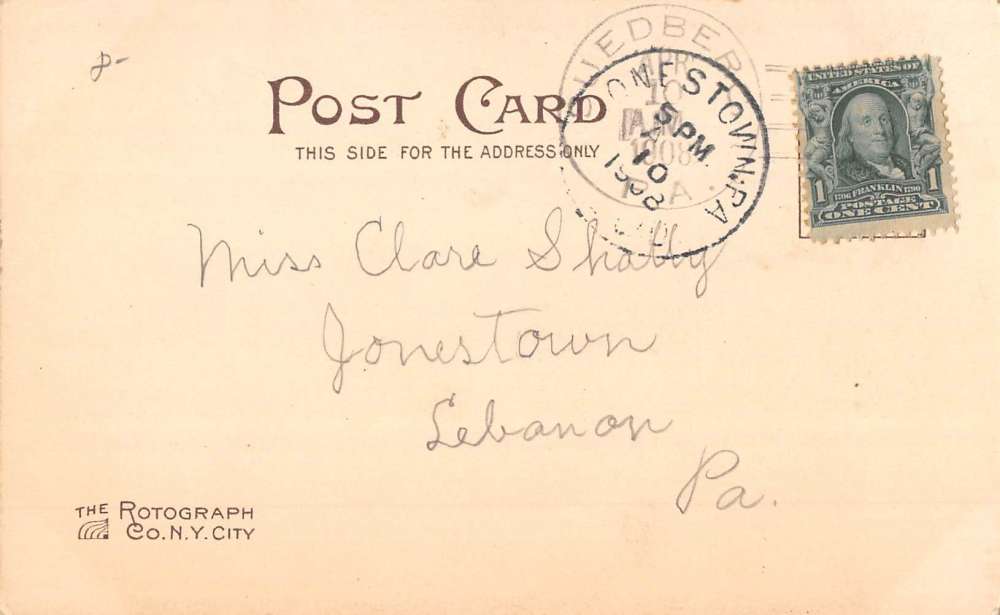 8-
POST CARD
THIS SIDE FOR THE ADDRESS ONLY
APR
10
A.M.
1908
PA.
JONESTOWN, PA
5 PM
10
1908
UNITED STATES OF
AMERICA
1706 FRANKLIN 1790
1 1
POSTAGE
ONE CENT
Miss Clare Shally
Jonestown
Lebanon
Pa.
THE ROTOGRAPH
CO. N.Y. CITY